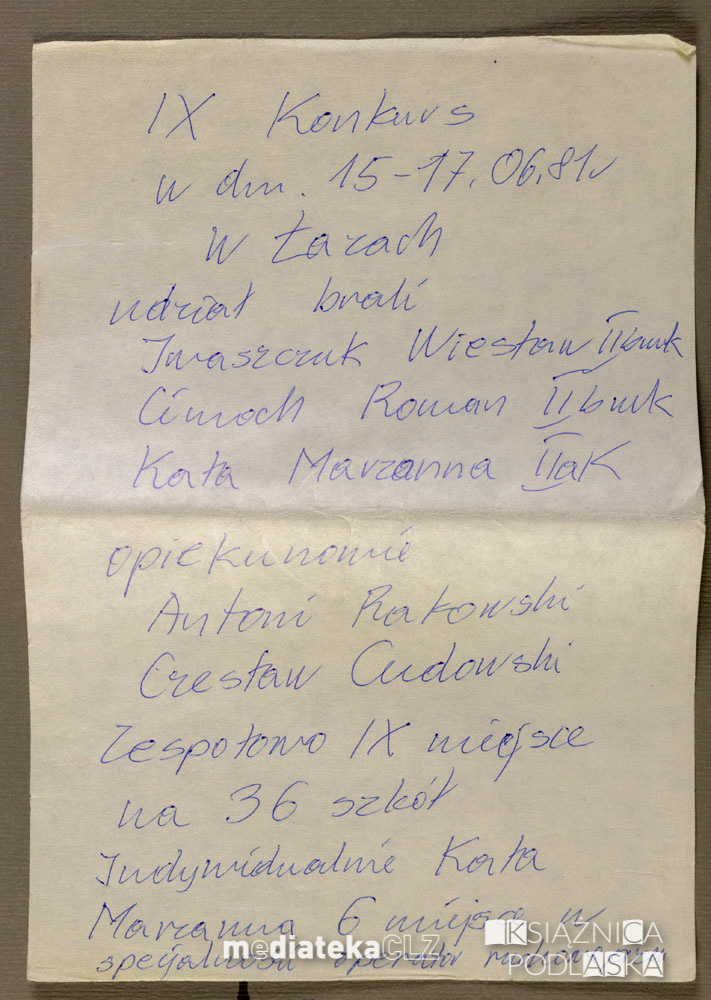 IX Konkurs
w dn. 15-17.06.81r
w Łazach
udział brali
Iwaszczuk Wiesław II bmk
Cimoch Roman II bmk
Kata Marzanna IIaK
opiekunowie
Antoni Rakowski
Czesław Cudowski
Zespołowo IX miejsce
na 36 szkół
Indywidualnie Kata
Marzanna 6 miejsce w
specjalności operator
mediatekaCLZ
KSIĄŻNICA
PODLASKA